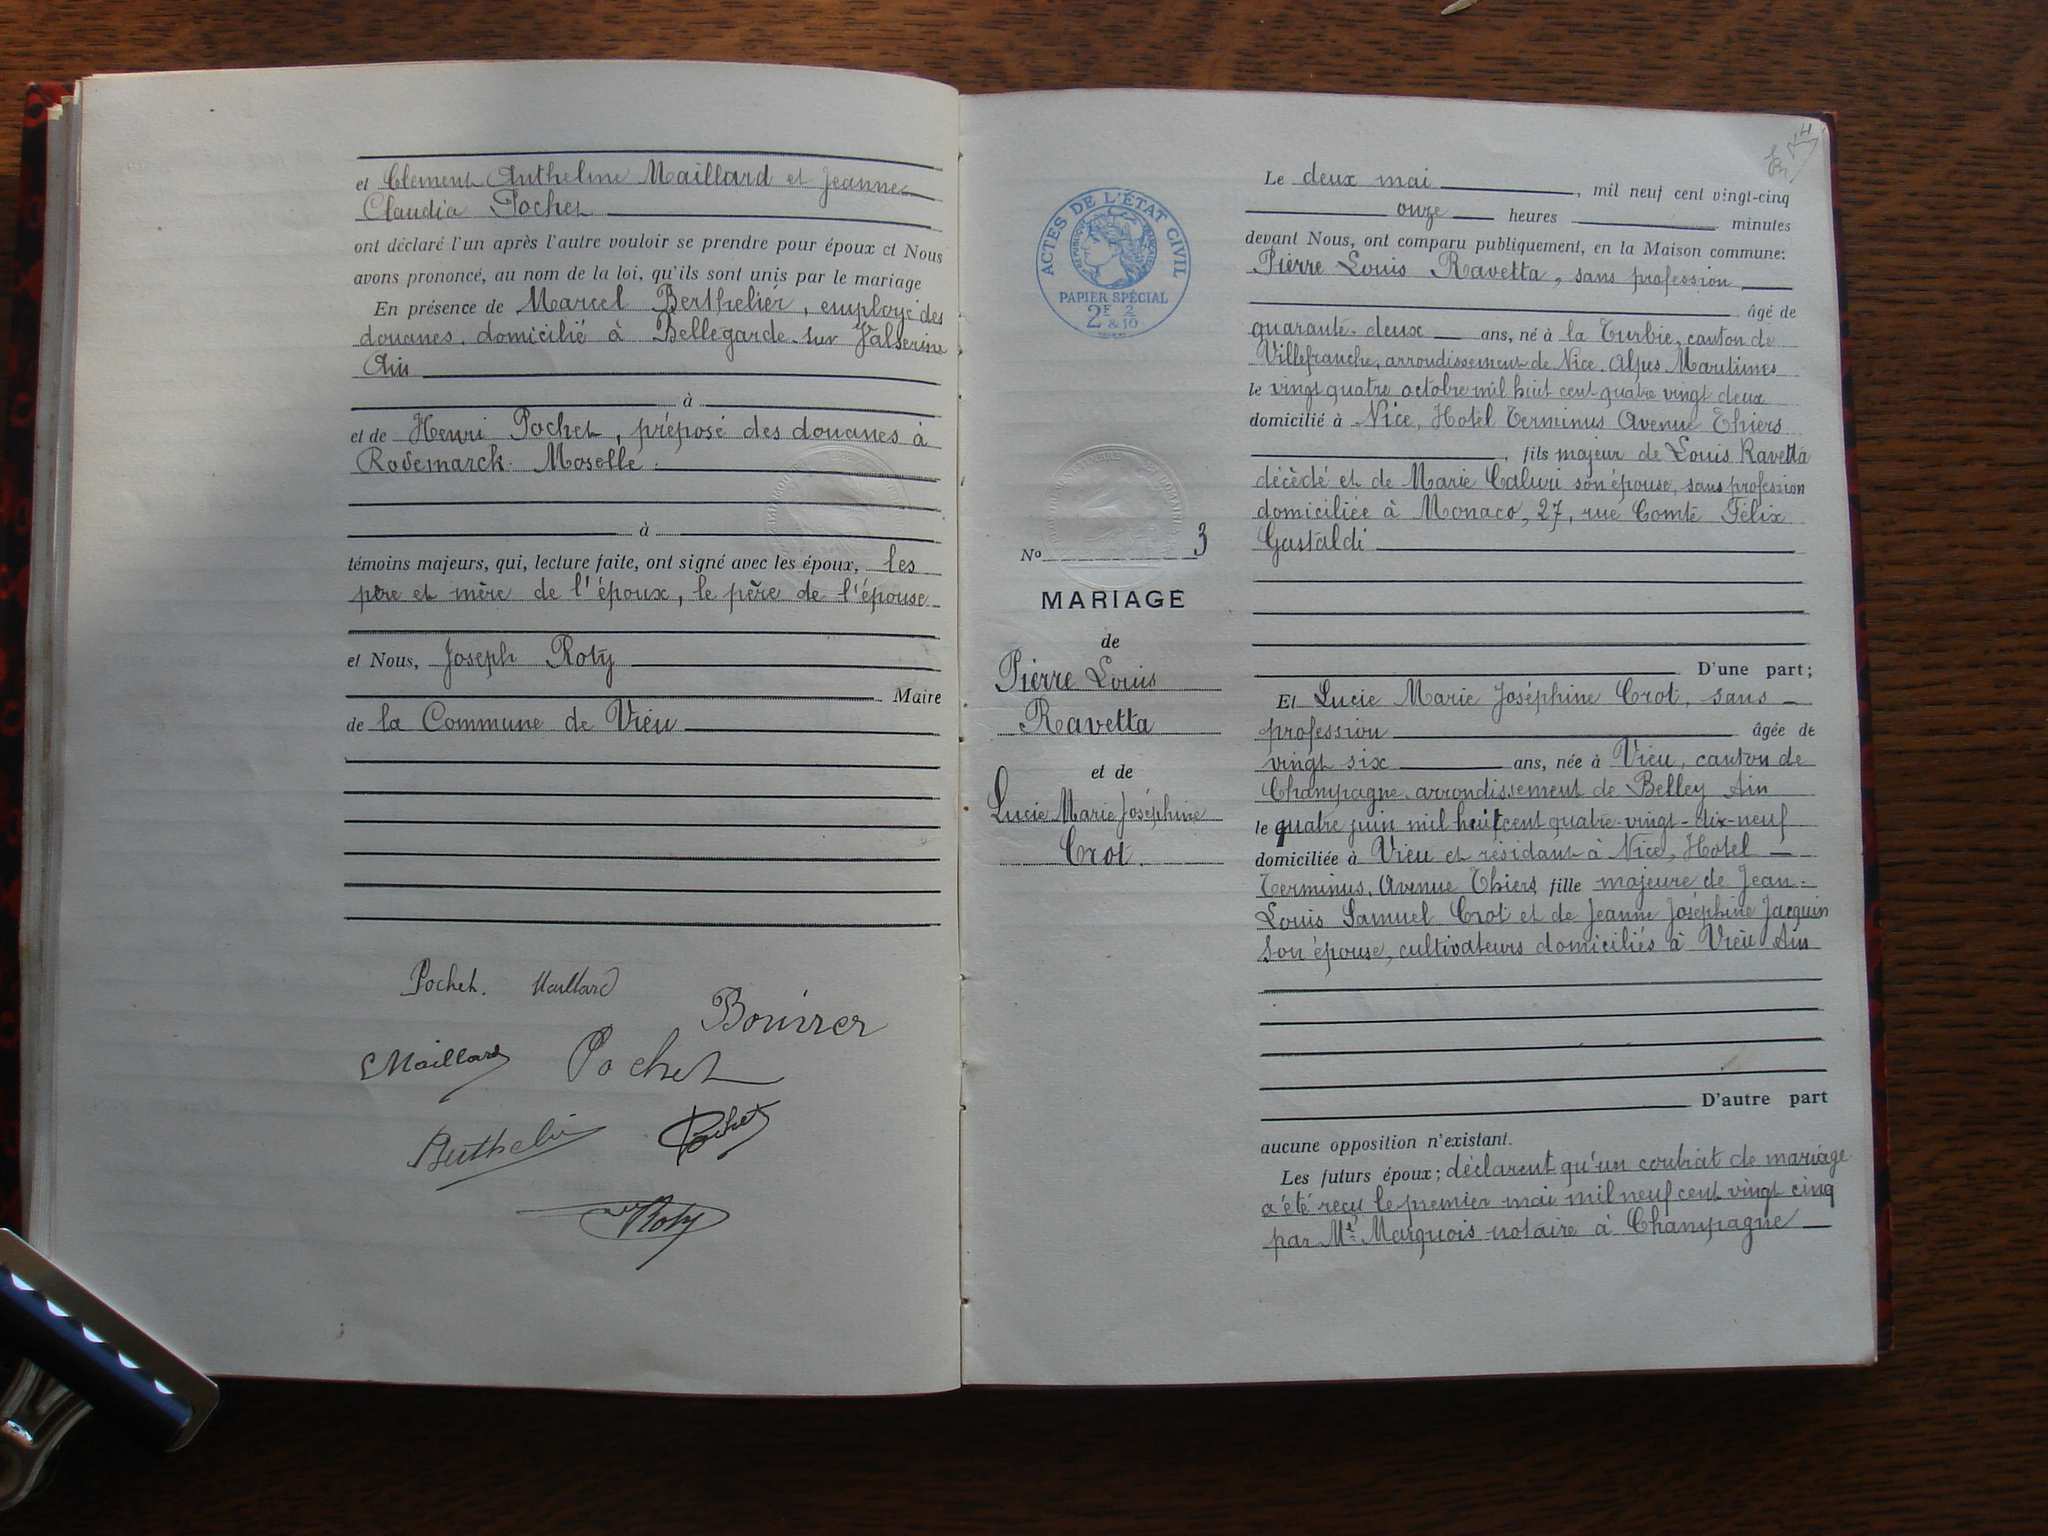 et Clément Anthelme Maillard et Jeanne
Claudia Pochet
ont déclaré l'un après l'autre vouloir se prendre pour époux et Nous
avons prononcé, au nom de la loi, qu'ils sont unis par le mariage
En présence de Marcel Berthelier, employé des
douanes, domicilié à Bellegarde-sur Valserine
Ain
à
et de Henri Pochet, préposé des douanes à
Rodemarck Moselle.
à
témoins majeurs, qui, lecture faite, ont signé avec les époux, les
père et mère de l'époux, le père de l'épouse
et Nous, Joseph Roty
Maire
de la Commune de Vieu
Pochet. Maillard
Bouvier
CMaillard Pochet
Berthelier Pochet
Roty
ACTES DE L'ÉTAT CIVIL
PAPIER SPÉCIAL
2F 2/10
&
No 3
MARIAGE
de
Pierre Louis
Ravetta
et de
Lucie Marie Joséphine
Crot.
Le deux mai, mil neuf cent vingt-cinq
onze heures minutes
devant Nous, ont comparu publiquement, en la Maison commune:
Pierre Louis Ravetta, sans profession
âgé de
quarante-deux ans, né à la Turbie, canton de
Villefranche, arrondissement de Nice, Alpes Maritimes
le vingt quatre octobre mil huit cent quatre vingt deux
domicilié à Nice, Hotel Terminus Avenue Thiers
, fils majeur de Louis Ravetta
décèdé et de Marie Caluri son épouse, sans profession
domiciliée à Monaco, 27, rue Comte Félix
Gastaldi
D'une part;
Et Lucie Marie Joséphine Crot, sans
profession âgée de
vingt six ans, née à Vieu, canton de
Champagne arrondissement de Belley Ain
le quatre juin mil huit cent quatre-vingt-dix-neuf
domiciliée à Vieu et résidant à Nice, Hotel
Terminus, Avenue Thiers, fille majeure de Jean-
Louis Samuel Crot et de Jeanne Joséphine Jacquin
son épouse, cultivateurs domiciliés à Vieu Ain
D'autre part
aucune opposition n'existant.
Les futurs époux; déclarent qu'un contrat de mariage
a été reçu le premier mai mil neuf cent vingt cinq
par Me Marquois notaire à Champagne